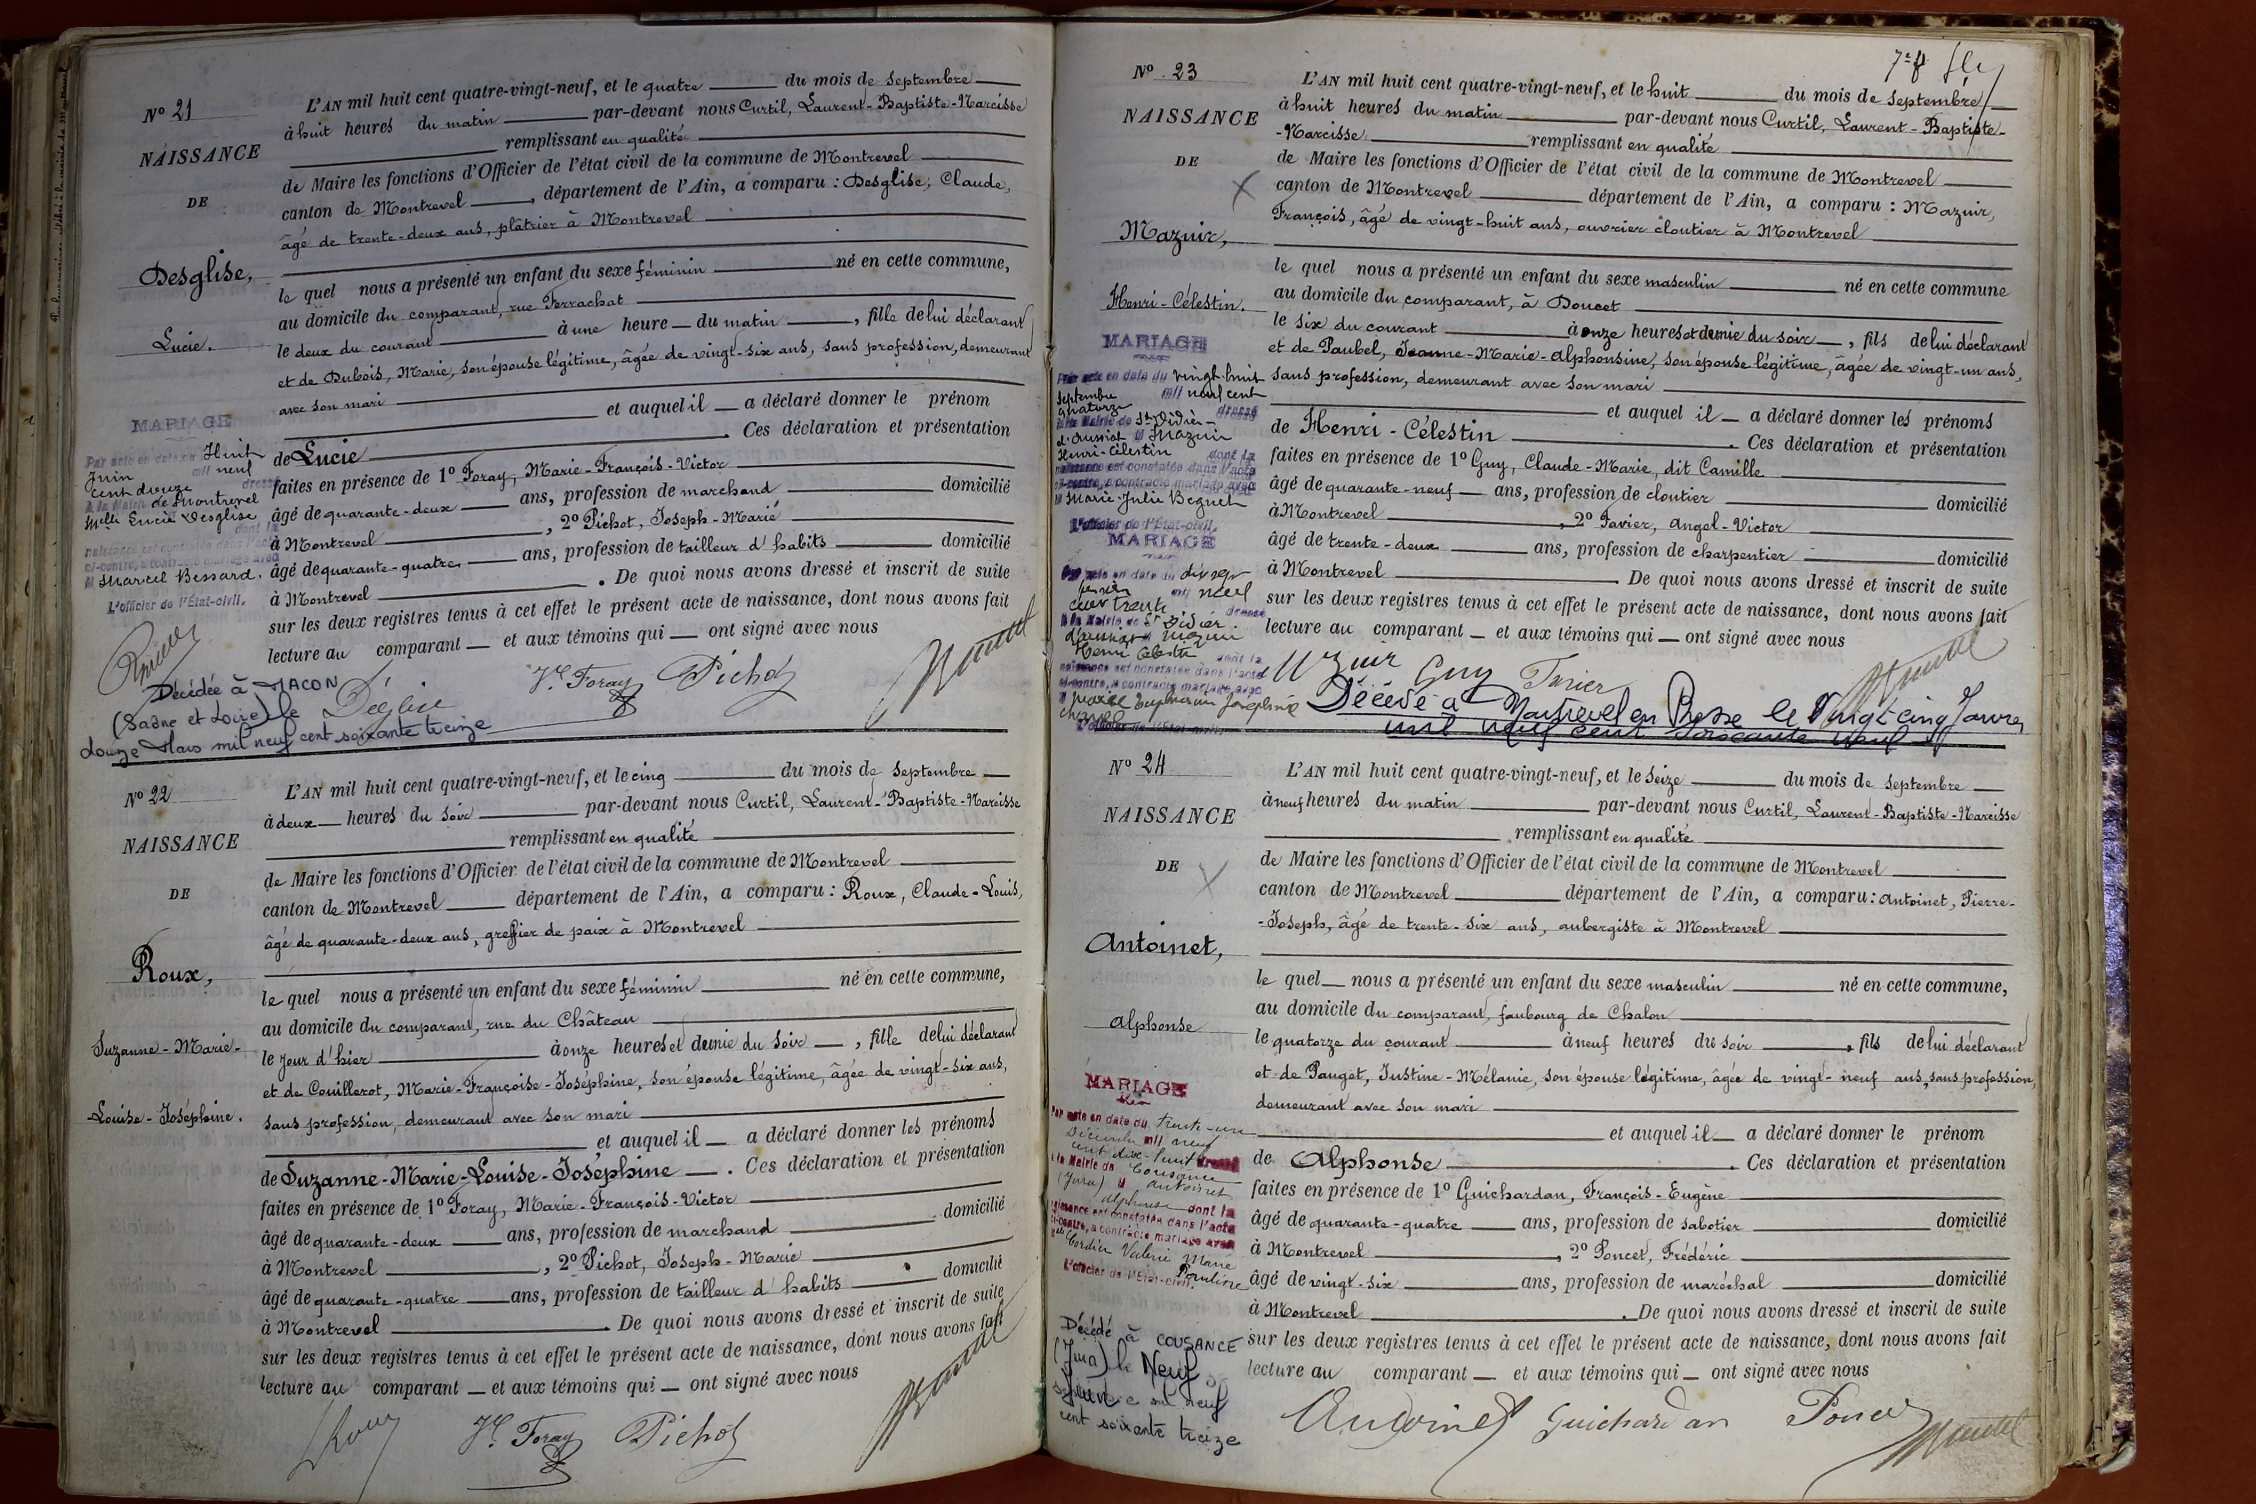 Nº 21
NAISSANCE
DE
Desglise,
Lucie.
L'AN mil huit cent quatre-vingt-neuf, et le quatre du mois de septembre
à huit heures du matin par-devant nous Curtil, Laurent-Baptiste-Narcisse
remplissant en qualité
de Maire les fonctions d'Officier de l'état civil de la commune de Montrevel
canton de Montrevel, département de l'Ain, a comparu : Desglise, Claude,
âgé de trente-deux ans, plâtrier à Montrevel
le quel nous a présenté un enfant du sexe féminin né en cette commune,
au domicile du comparant, rue Ferrachat
le deux du courant à une heure du matin, fille de lui déclarant
et de Dubois, Marie, son épouse légitime, âgée de vingt-six ans, sans profession, demeurant
avec son mari
et auquel il a déclaré donner le prénom
de Lucie. Ces déclaration et présentation
faites en présence de 1º Foray, Marie-François-Victor
âgé de quarante-deux ans, profession de marchand domicilié
à Montrevel, 2º Pichot, Joseph-Marie
âgé de quarante-quatre ans, profession de tailleur d'habits domicilié
à Montrevel. De quoi nous avons dressé et inscrit de suite
sur les deux registres tenus à cet effet le présent acte de naissance, dont nous avons fait
lecture au comparant et aux témoins qui ont signé avec nous
MARIAGE
Par acte en date du Huit
Juin mil neuf
cent douze dressé
à la Mairie de Montrevel
Melle Lucie Desglise
dont la
naissance est constatée dans l'acte
ci-contre, a contracté mariage avec
M Marcel Bessard.
L'officier de l'État-civil.
Décédée à MACON
(Saône et Loire) le
douze Mars mil neuf cent soixante treize
Vr Foray Pichot
Nº 22
NAISSANCE
DE
Roux,
Suzanne-Marie-
Louise-Joséphine.
L'AN mil huit cent quatre-vingt-neuf, et le cinq du mois de septembre
à deux heures du soir par-devant nous Curtil, Laurent-Baptiste-Narcisse
remplissant en qualité
de Maire les fonctions d'Officier de l'état civil de la commune de Montrevel
canton de Montrevel département de l'Ain, a comparu : Roux, Claude-Louis,
âgé de quarante-deux ans, greffier de paix à Montrevel
le quel nous a présenté un enfant du sexe féminin né en cette commune,
au domicile du comparant, rue du Château
le jour d'hier à onze heures et demie du soir, fille de lui déclarant
et de Couillerot, Marie-Françoise-Joséphine, son épouse légitime, âgée de vingt-six ans,
sans profession, demeurant avec son mari
et auquel il a déclaré donner les prénoms
de Suzanne-Marie-Louise-Joséphine. Ces déclaration et présentation
faites en présence de 1º Foray, Marie-François-Victor
âgé de quarante-deux ans, profession de marchand domicilié
à Montrevel, 2º Pichot, Joseph-Marie
âgé de quarante-quatre ans, profession de tailleur d'habits domicilié
à Montrevel. De quoi nous avons dressé et inscrit de suite
sur les deux registres tenus à cet effet le présent acte de naissance, dont nous avons fait
lecture au comparant et aux témoins qui ont signé avec nous
Roux Vr Foray Pichot
Nº 23
NAISSANCE
DE
Mazuir,
Henri-Célestin.
L'AN mil huit cent quatre-vingt-neuf, et le huit du mois de septembre
à huit heures du matin par-devant nous Curtil, Laurent-Baptiste-
-Narcisse remplissant en qualité
de Maire les fonctions d'Officier de l'état civil de la commune de Montrevel
canton de Montrevel département de l'Ain, a comparu : Mazuir,
François, âgé de vingt-huit ans, ouvrier cloutier à Montrevel
le quel nous a présenté un enfant du sexe masculin né en cette commune
au domicile du comparant, à Doucet
le six du courant à onze heures et demie du soir, fils de lui déclarant
et de Paubel, Jeanne-Marie-Alphonsine, son épouse légitime, âgée de vingt-un ans,
sans profession, demeurant avec son mari
et auquel il a déclaré donner les prénoms
de Henri-Célestin. Ces déclaration et présentation
faites en présence de 1º Guy, Claude-Marie, dit Camille
âgé de quarante-neuf ans, profession de cloutier domicilié
à Montrevel, 2º Tavier, Angel-Victor
âgé de trente-deux ans, profession de charpentier domicilié
à Montrevel. De quoi nous avons dressé et inscrit de suite
sur les deux registres tenus à cet effet le présent acte de naissance, dont nous avons fait
lecture au comparant et aux témoins qui ont signé avec nous
MARIAGE
Par acte en date du vingt-huit
septembre mil neuf cent
quatorze dressé
à la Mairie de St Didier-
d'Aussiat M Mazuir
Henri-Célestin dont la
naissance est constatée dans l'acte
ci-contre, a contracté mariage avec
M Marie-Julie Beguet
L'officier de l'État-civil.
MARIAGE
Par acte en date du dix sept
janvier mil neuf
cent trente dressé
à la Mairie de St Didier
d'Aussiat M Mazuir
Henri Célestin dont la
naissance est constatée dans l'acte
ci-contre, a contracté mariage avec
M Marie Josephine
L'officier de l'État-civil.
Mazuir Guy Tavier
Décédé à Montrevel en Bresse le Vingt cinq Janvier
mil neuf cent soixante neuf
Nº 24
NAISSANCE
DE
Antoinet,
Alphonse
L'AN mil huit cent quatre-vingt-neuf, et le seize du mois de septembre
à neuf heures du matin par-devant nous Curtil, Laurent-Baptiste-Narcisse
remplissant en qualité
de Maire les fonctions d'Officier de l'état civil de la commune de Montrevel
canton de Montrevel département de l'Ain, a comparu : Antoinet, Pierre-
-Joseph, âgé de trente-six ans, aubergiste à Montrevel
le quel nous a présenté un enfant du sexe masculin né en cette commune,
au domicile du comparant, faubourg de Chalon
le quatorze du courant à neuf heures du soir, fils de lui déclarant
et de Pauget, Justine-Mélanie, son épouse légitime, âgée de vingt-neuf ans, sans profession,
demeurant avec son mari
et auquel il a déclaré donner le prénom
de Alphonse. Ces déclaration et présentation
faites en présence de 1º Guichardan, François-Eugène
âgé de quarante-quatre ans, profession de sabotier domicilié
à Montrevel, 2º Poncet, Frédéric
âgé de vingt-six ans, profession de maréchal domicilié
à Montrevel. De quoi nous avons dressé et inscrit de suite
sur les deux registres tenus à cet effet le présent acte de naissance, dont nous avons fait
lecture au comparant et aux témoins qui ont signé avec nous
MARIAGE
Par acte en date du trente-un
Décembre mil neuf
cent dix-huit dressé
à la Mairie de Cousance
(Jura) M Antoinet
Alphonse dont la
naissance est constatée dans l'acte
ci-contre, a contracté mariage avec
Cordier Valérie Marie
Pauline
L'officier de l'État-civil.
Décédé à COUSANCE
(Jura) le Neuf
septembre mil neuf
cent soixante treize
Antoinet Guichardan Poncet